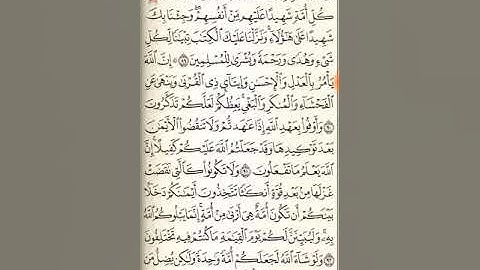 كُلِّ أُمَّةٍ شَهِيدًا عَلَيْهِم مِّنْ أَنفُسِهِمْ ۖ وَجِئْنَا بِكَ
شَهِيدًا عَلَىٰ هَٰٓؤُلَآءِ ۚ وَنَزَّلْنَا عَلَيْكَ ٱلْكِتَٰبَ تِبْيَٰنًا لِّكُلِّ
شَىْءٍ وَهُدًى وَرَحْمَةً وَبُشْرَىٰ لِلْمُسْلِمِينَ ۝٨٩ ۞ إِنَّ ٱللَّهَ
يَأْمُرُ بِٱلْعَدْلِ وَٱلْإِحْسَٰنِ وَإِيتَآئِ ذِى ٱلْقُرْبَىٰ وَيَنْهَىٰ عَنِ
ٱلْفَحْشَآءِ وَٱلْمُنكَرِ وَٱلْبَغْىِ ۚ يَعِظُكُمْ لَعَلَّكُمْ تَذَكَّرُونَ
۝٩٠ وَأَوْفُوا۟ بِعَهْدِ ٱللَّهِ إِذَا عَٰهَدتُّمْ وَلَا تَنقُضُوا۟ ٱلْأَيْمَٰنَ
بَعْدَ تَوْكِيدِهَا وَقَدْ جَعَلْتُمُ ٱللَّهَ عَلَيْكُمْ كَفِيلًا ۚ إِنَّ
ٱللَّهَ يَعْلَمُ مَا تَفْعَلُونَ ۝٩١ وَلَا تَكُونُوا۟ كَٱلَّتِى نَقَضَتْ
غَزْلَهَا مِنۢ بَعْدِ قُوَّةٍ أَنكَٰثًا تَتَّخِذُونَ أَيْمَٰنَكُمْ دَخَلًۢا
بَيْنَكُمْ أَن تَكُونَ أُمَّةٌ هِىَ أَرْبَىٰ مِنْ أُمَّةٍ ۚ إِنَّمَا يَبْلُوكُمُ ٱللَّهُ
بِهِۦ ۚ وَلَيُبَيِّنَنَّ لَكُمْ يَوْمَ ٱلْقِيَٰمَةِ مَا كُنتُمْ فِيهِ تَخْتَلِفُونَ
۝٩٢ وَلَوْ شَآءَ ٱللَّهُ لَجَعَلَكُمْ أُمَّةً وَٰحِدَةً وَلَٰكِن يُضِلُّ مَن